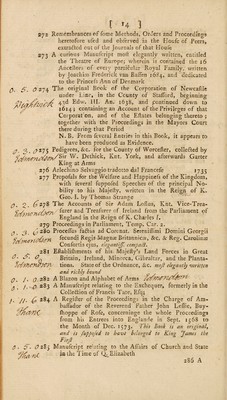 [ 14 ]
272 Remembrances of some Methods, Orders and Proceedings
heretofore used and observed in the House of Peers,
extracted out of the Journals of that House
273 A curious Manuscript most elegantly written, entitled
the Theatre of Europe; wherein is contained the 16
Ancestors of every particular Royal Family, written
by Joachim Frederick van Bassen 1684, and dedicated
to the Princess Ann of Denmark
0. 5. 0 274 The original Book of the Corporation of Newcastle
under Line, in the County of Stafford, beginning
43d Edw. III. An. 1638, and continued down to
1624; containing an Account of the Privileges of that
Corporation, and of the Estates belonging thereto;
together with the Proceedings in the Mayors Court
there during that Period
N. B. From several Entries in this Book, it appears to
have been produced as Evidence.
0. 3. 0 275 Pedigrees, &c. for the County of Worcester, collected by
Edmondson Sir W. Dethick, Knt. York, and afterwards Garter
King at Arms
276 Arlechino Selvaggio tradotto dal Francese 1735
277 Proposals for the Welfare and Happiness of the Kingdom,
with several supposed Speeches of the principal No-
bility to his Majesty, written in the Reign of K.
Geo. I. by Thomas Strange
0. 2. 6 278 The Accounts of Sir Adam Loftus, Knt. Vice-Trea-
Edmondson surer and Treasurer of Ireland from the Parliament of
England in the Reign of K. Charles I.
279 Proceedings in Parliament, Temp. Car. 1.
0. 3. 6 280 Processus factus ad Coronat. Serenissimi Domini Georgii
Edmondson Secundi Regis Magnæ Britanniæ, &c. & Reg. Carolinæ
Consortis 1920, elegantissimè compact.
0. 5. 0 281 Establishments of his Majesty's Land Forces in Great
Edmondson Britain, Ireland, Minorca, Gibraltar, and the Planta-
tions. State of the Ordnance, &c. most elegantly written
and richly bound
0. 1. 0 282 A Blazon and Alphabet of Arms Edmondson
0. 1. 0 283 A Manuscript relating to the Exchequer, formerly in the
Collection of Francis Tate, Esq;
1. 11. 6 284 A Register of the Proceedings in the Charge of Am-
Thane bassador of the Reverend Father John Leslie, Bus-
shoppe of Ross, concerninge the whole Proceedings
from his Entree into Englande in Sept. 1568 to
the Month of Dec. 1573. This Book is an original,
and is supposed to have belonged to King James the
First
0. 5. 0 285 Manuscript relating to the Affairs of Church and State
Thane in the Time of Q. Elizabeth
286 A